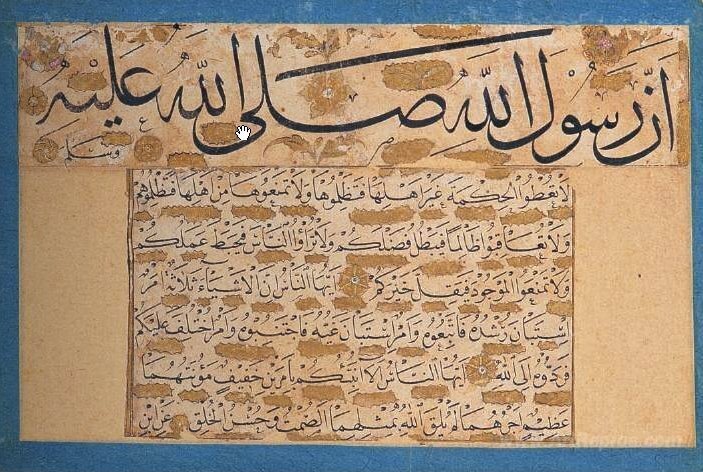 اَنَّ رَسُولَ اللّٰهِ صَلَّى اللّٰهُ عَلَيْهِ
وَسَلَّمَ
لا تعطوا الحكمة غير اهلها فتظلموها ولا تمنعوها من اهلها فتظلموهم
ولا تعاقبوا ظالما فيبطل فضلكم ولا تراؤا الناس فيحبط عملكم
ولا تمنعوا الموجود فيقل خيركم ايها الناس ان الاشياء ثلاثة امر
استبان رشده فاتبعوه وامر استبان غيه فاجتنبوه وامر اختلف عليكم
فردوه الى الله ايها الناس الا انبئكم بامرين خفيف مؤنتهما
عظيم اجرهما لم يلق الله بمثلهما الصمت وحسن الخلق عن ابن